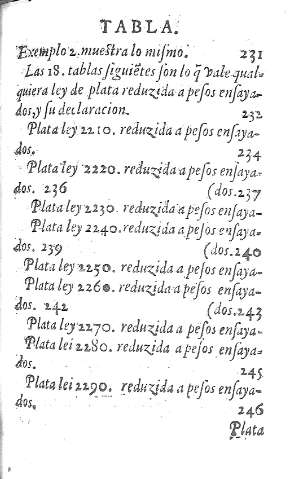 TABLA.
Exemplo 2. muestra lo mismo. 231
Las 18. tablas siguiẽtes son lo q̃ vale qual-
quiera ley de plata reduzida a pesos ensaya-
dos, y su declaracion. 232
Plata ley 2210. reduzida a pesos ensaya-
dos. 234
Plata ley 2220. reduzida a pesos ensaya-
dos. 236 (dos. 237
Plata ley 2230. reduzida a pesos ensaya-
Plata ley 2240. reduzida a pesos ensaya-
dos. 239 (dos. 240
Plata ley 2250. reduzida a pesos ensaya-
Plata ley 2260. reduzida a pesos ensaya-
dos. 242 (dos. 243
Plata ley 2270. reduzida a pesos ensaya-
Plata lei 2280. reduzida a pesos ensaya-
dos. 245
Plata lei 2290. reduzida a pesos ensaya-
dos. 246
Plata